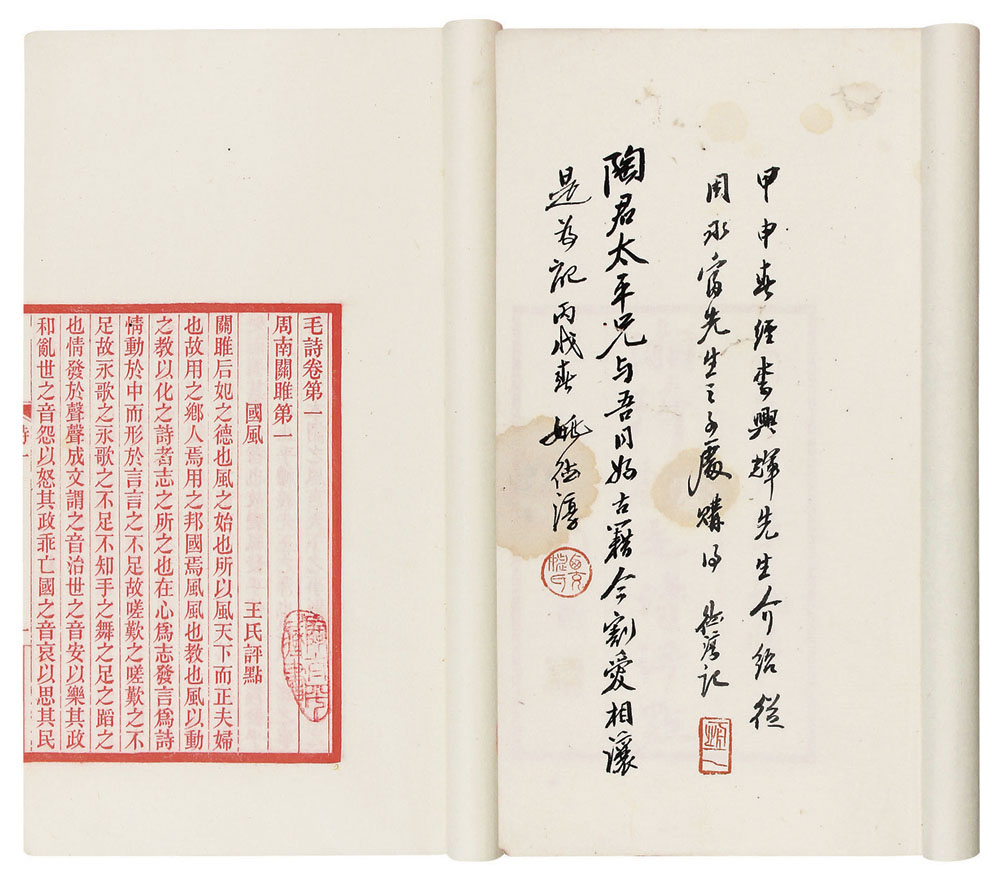 甲申春經李興輝先生介紹從
周永富先生之子處購得 德淳记
陶君太平兄与吾同好古籍今割愛相讓
是为記丙戌春 姚德淳
毛詩卷第一
周南關雎第一
國風 王氏評點
關雎后妃之德也風之始也所以風天下而正夫婦
也故用之鄉人焉用之邦國焉風風也教也風以動
之教以化之詩者志之所之也在心爲志發言爲詩
情動於中而形於言言之不足故嗟歎之嗟歎之不
足故永歌之永歌之不足不知手之舞之足之蹈之
也情發於聲聲成文謂之音治世之音安以樂其政
和亂世之音怨以怒其政乖亡國之音哀以思其民